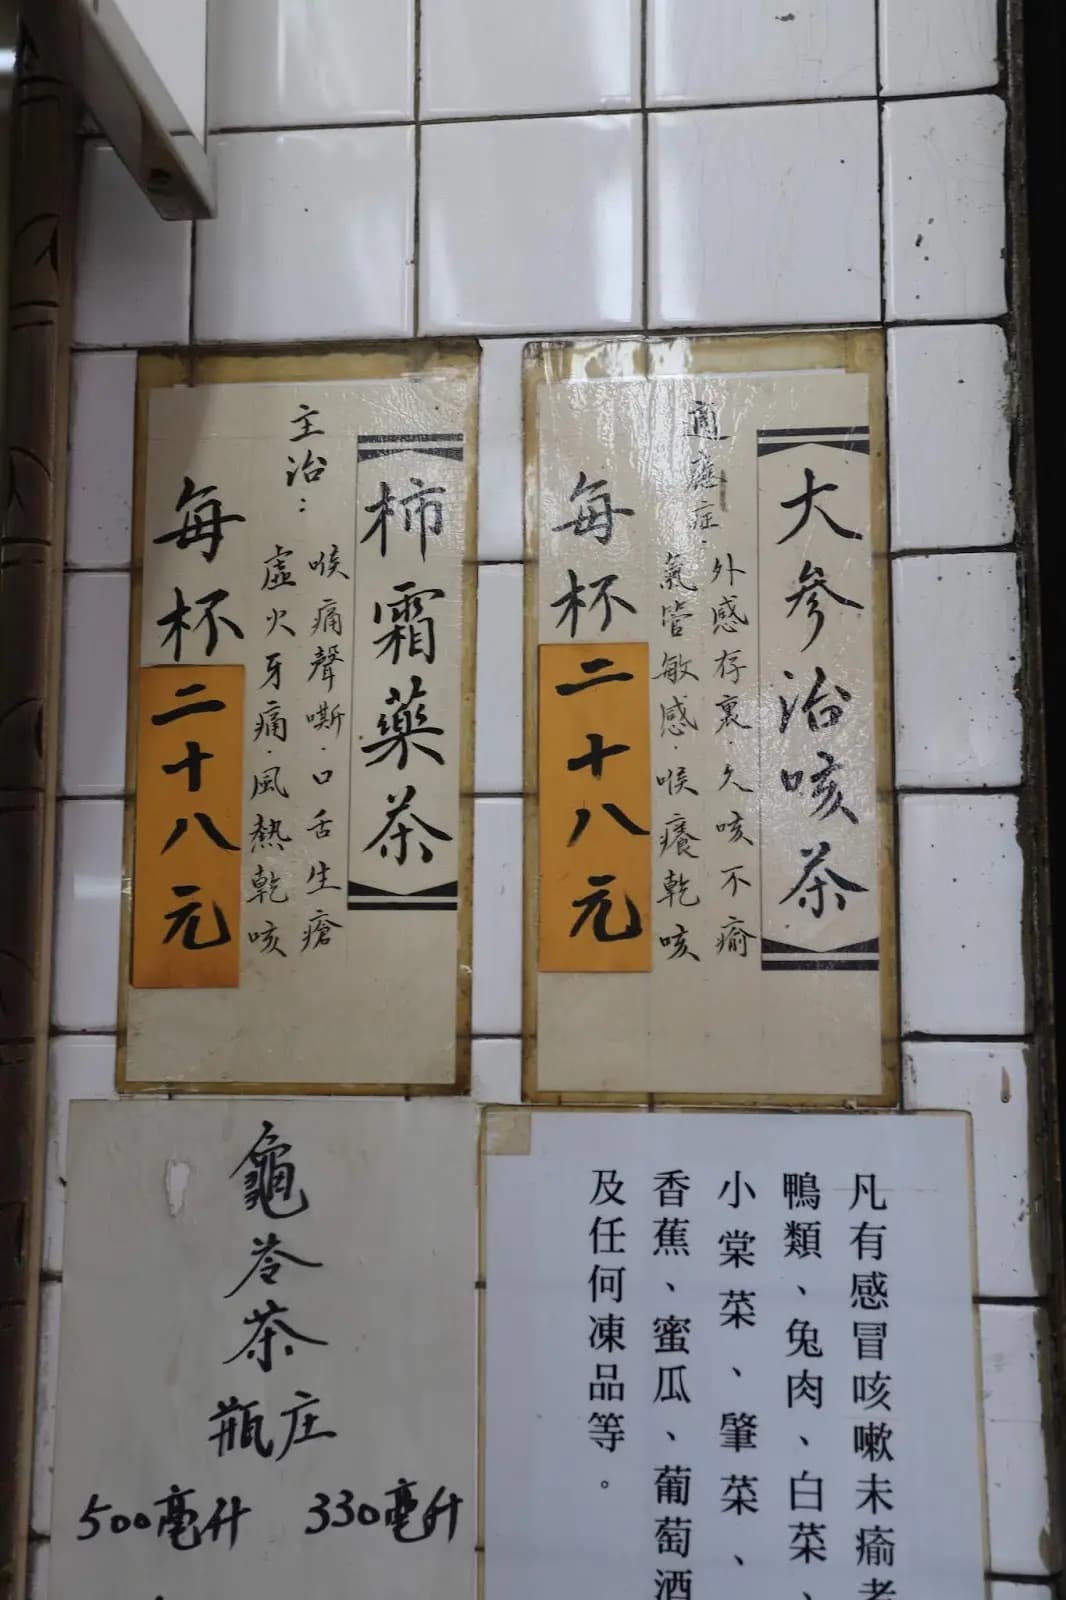 大參治咳茶
適應症：
外感存裏·久咳不瘉
氣管敏感·喉癢乾咳
每杯
二十八元
柿霜藥茶
主治：
喉痛聲嘶·口舌生瘡
虛火牙痛·風熱乾咳
每杯
二十八元
凡有感冒咳嗽未瘉者
鴨類、兔肉、白菜、
小棠菜、肇菜、
香蕉、蜜瓜、葡萄酒
及任何凍品等。
龜苓茶
瓶庄
500毫升 330毫升